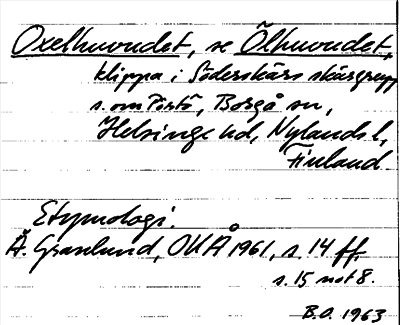 Oxelhuvudet, se Ölhuvudet,
klippa i Söderskärs skärgrupp
s. om Pörtö, Borgå sn,
Helsinge hd, Nylands l,
Finland
Etymologi.
Å. Granlund, OUÅ 1961, s. 14 ff.
s. 15 not 8.
B.O. 1963